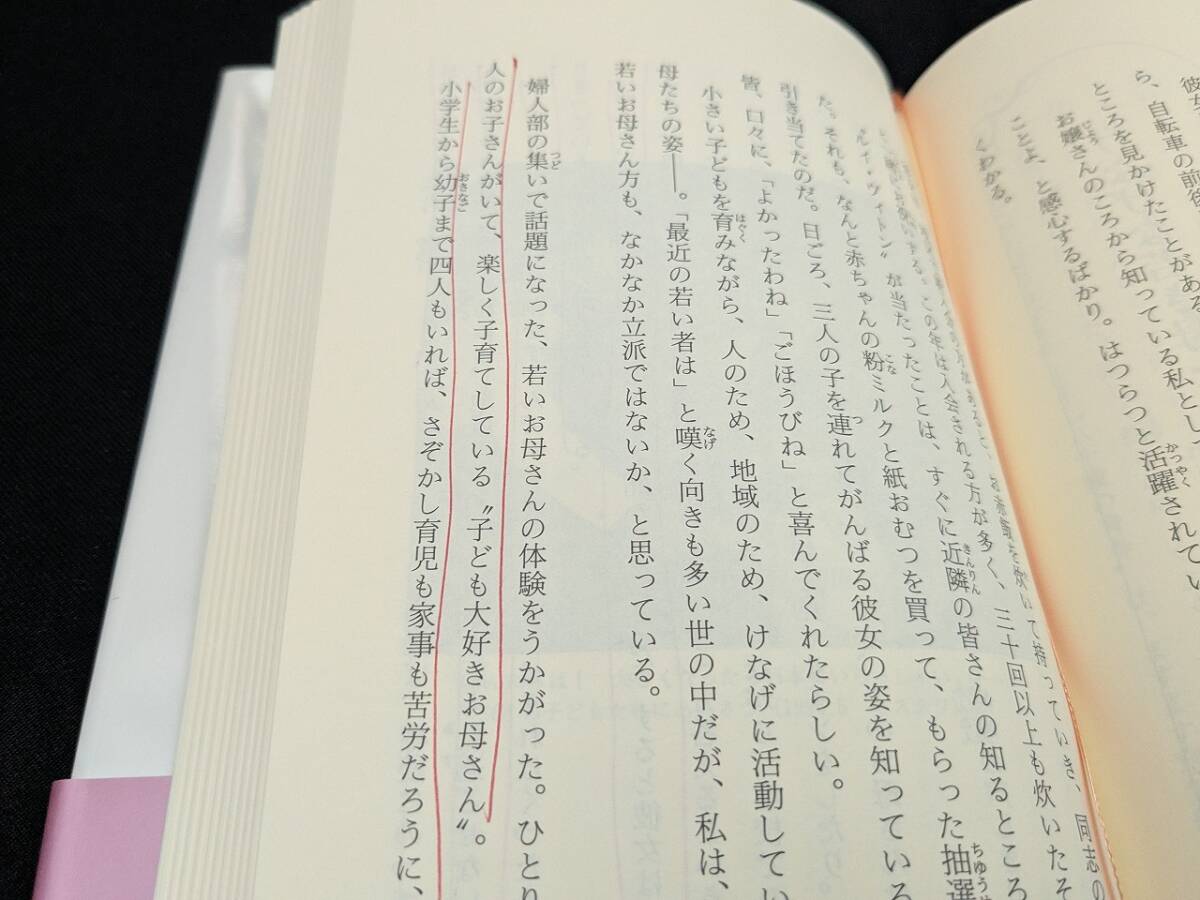 彼女
ら、自転車の前後
ところを見かけたことがある
お嬢さんのころから知っている私とし
ことよ、と感心するばかり。はつらつと活躍されてい
くわかる。
お赤飯を炊いて持っていき、同志の
この年は入会される方が多く、三十回以上も炊いたそ
が当たったことは、すぐに近隣の皆さんの知るところ
た。それも、なんと赤ちゃんの粉ミルクと紙おむつを買って、もらった抽選
引き当てたのだ。日ごろ、三人の子を連れてがんばる彼女の姿を知っている
皆、口々に、「よかったわね」「ごほうびね」と喜んでくれたらしい。
小さい子どもを育みながら、人のため、地域のため、けなげに活動してい
母たちの姿――。「最近の若い者は」と嘆く向きも多い世の中だが、私は、
若いお母さん方も、なかなか立派ではないか、と思っている。
婦人部の集いで話題になった、若いお母さんの体験をうかがった。ひとり
人のお子さんがいて、楽しく子育てしている〝子ども大好きお母さん〟。
小学生から幼子まで四人もいれば、さぞかし育児も家事も苦労だろうに、